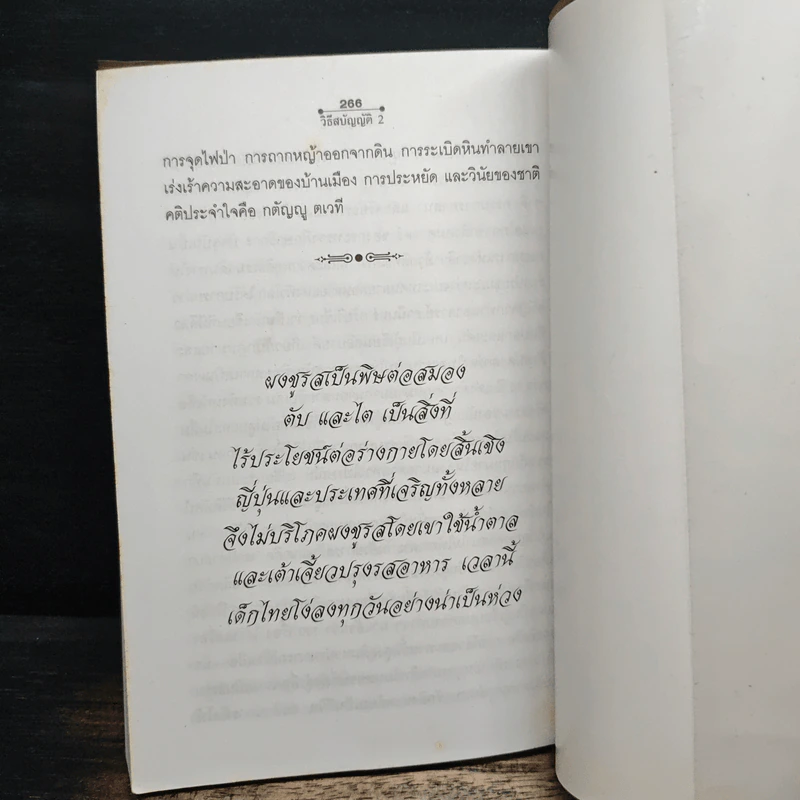 266
วิธีสบัญญัติ 2
การจุดไฟป่า การถากหญ้าออกจากดิน การระเบิดหินทำลายเขา
เร่งเร้าความสะอาดของบ้านเมือง การประหยัด และวินัยของชาติ
คติประจำใจคือ กตัญญู ตเวที
ผงชูรสเป็นพิษต่อสมอง
ตับ และไต เป็นสิ่งที่
ไร้ประโยชน์ต่อร่างกายโดยสิ้นเชิง
ญี่ปุ่นและประเทศที่เจริญทั้งหลาย
จึงไม่บริโภคผงชูรสโดยเขาใช้น้ำตาล
และเต้าเจี้ยวปรุงรสอาหาร เวลานี้
เด็กไทยโง่ลงทุกวันอย่างน่าเป็นห่วง